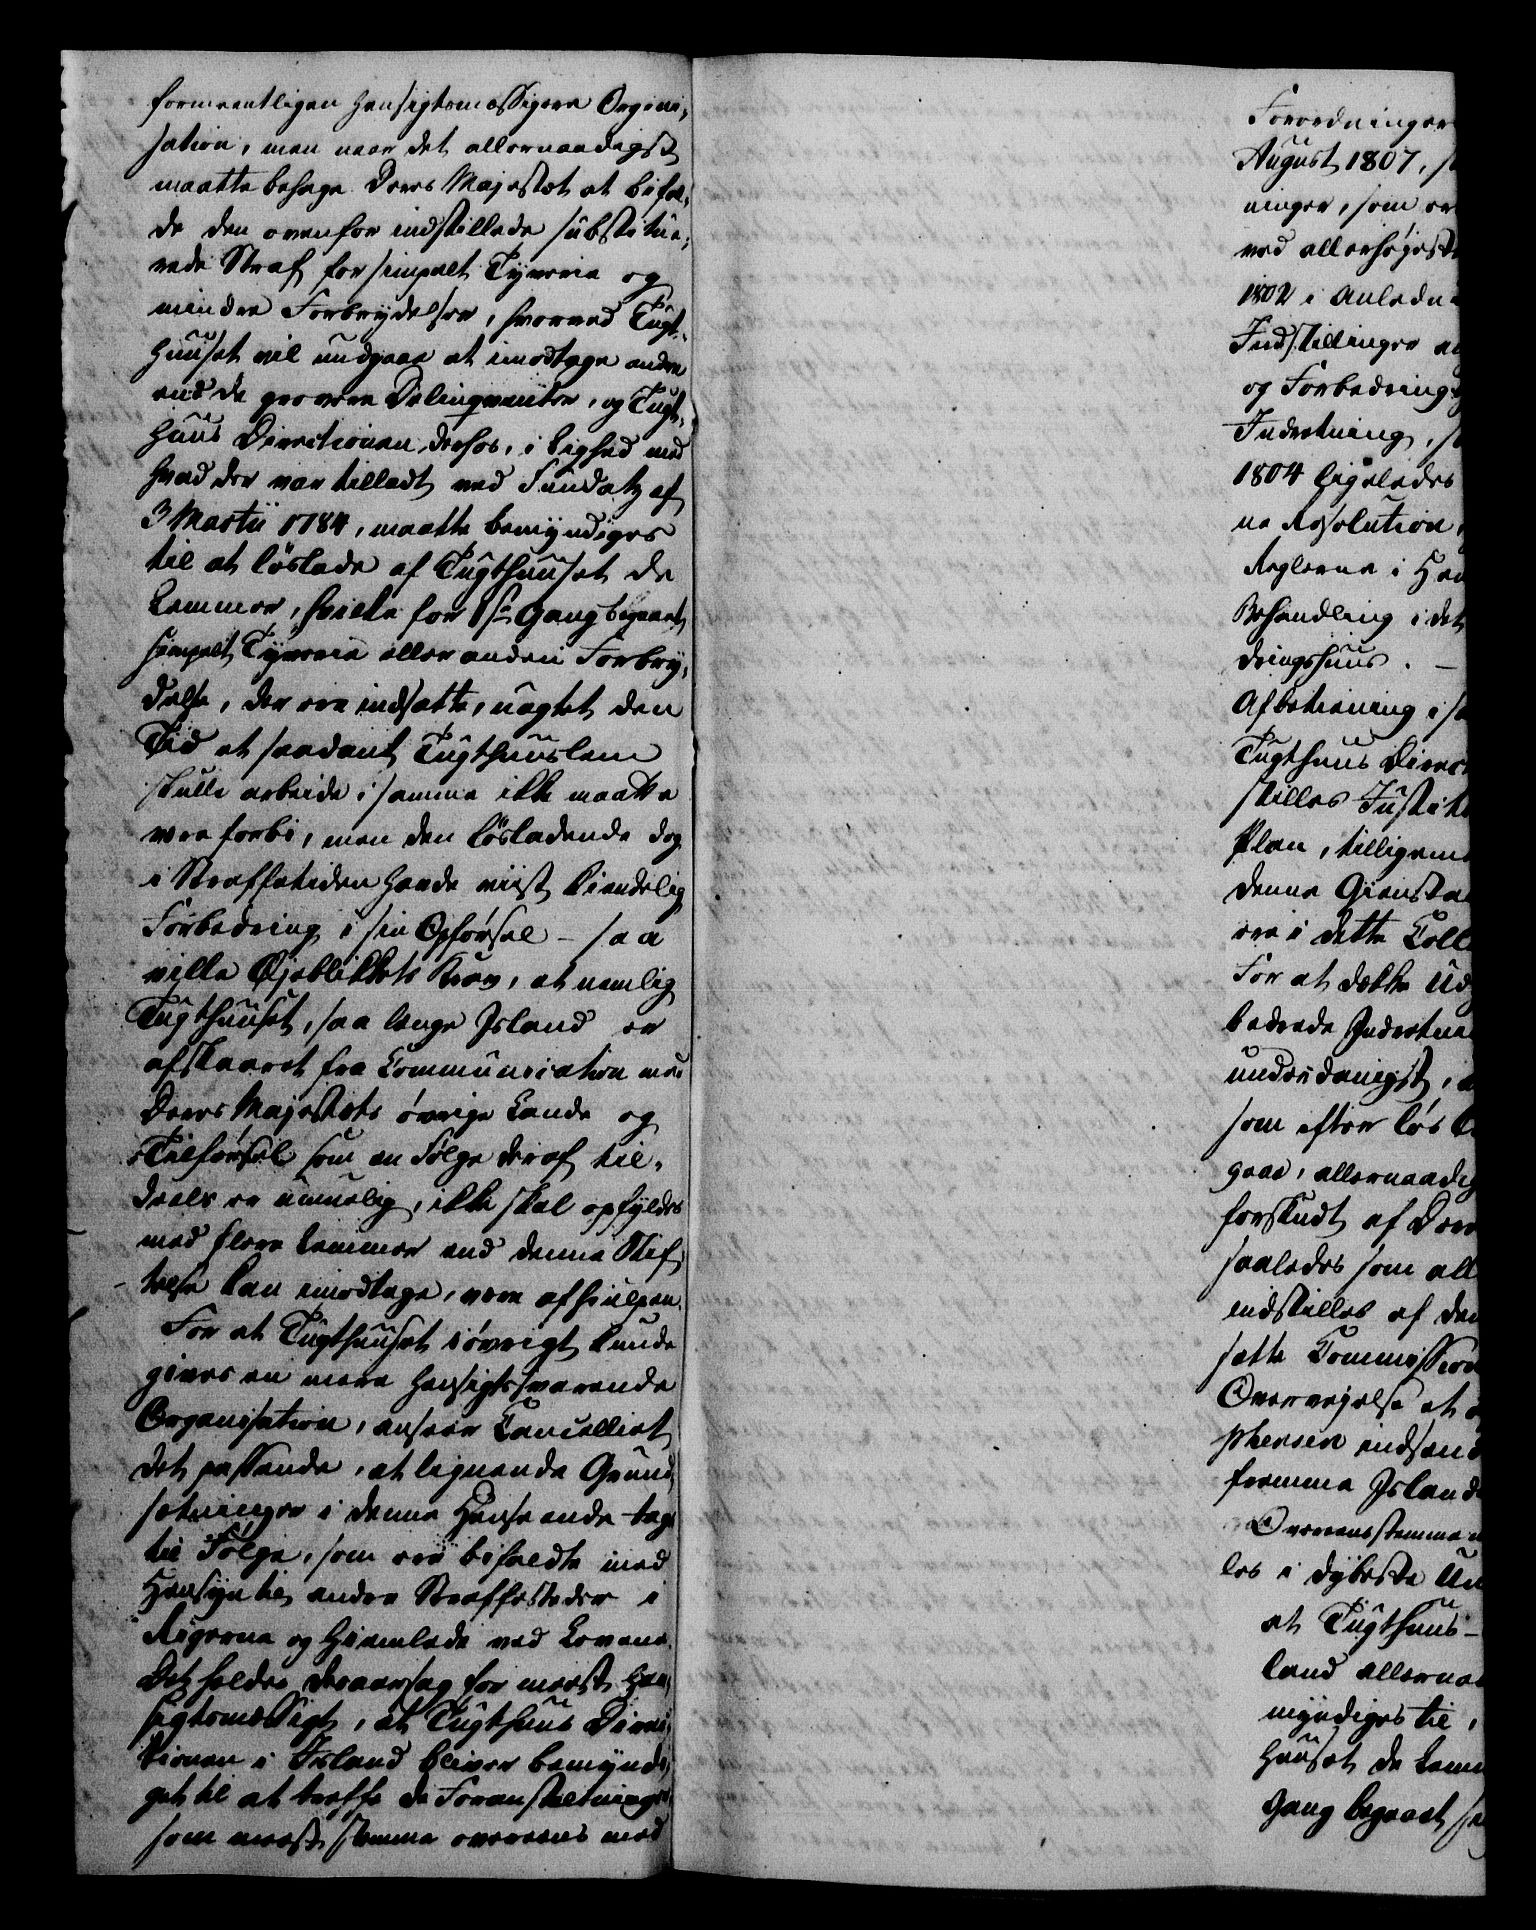 formeentligen hensigtsmæssigere Orgini,
sation, men naar det allernaadigst
maatte behage Deres Majestæt at bifal,
de den ovenfor indstillede substitue,
rede Straf for simpelt Tyverie og
mindre Forbrydelser, hvorved Tugt,
Huuset vil undgaae at imodtage andre
end de grovere Delinqventer, og Tugt,
Huus Directionen derhos, i Lighed med
hvad der var tilladt ved Fundatz af
3 Martii 1784, maatte bemyndiges
til at løslade af Tugthuuset de
Lemmer, hvilke for 1ste Gang begaaet
simpelt Tyverie eller anden Forbry,
delse, der ere indsatte, uagtet den
Tid at saadant Tugthuuslem
skulle arbeide i samme ikke maatte
være forbi, men den løsladende dog
i Straffetiden havde viist kiendelig
Forbedring i sin Opførsel – saa
ville Øjeblikkets Krav, at nemlig
Tugthuuset, saa længe Island er
afskaaret fra Communication med
Deres Majestæts øvrige Lande og
Tilførsel som en Følge deraf til,
deels er umuelig, ikke skal opfyldes
med flere Lemmer end denne Stif,
telse kan imodtage, være afhiulpen.
For at Tugthuuset iøvrigt kunde
gives en mere hensigtssvarende
Organisation, anseer Cancelliet
det passende, at lignende Grund,
sætninger i denne Henseende tages
til Følge, som ere bifaldte med
Hensyn til andre Straffesteder i
Rigerne og hiemlede ved Lovene.
Det holdes desaarsag for meest hen,
sigtsmæssigt, at Tugthuus Direc,
tionen i Island bliver bemyndi,
get til at træffe de Foranstaltninger
som meest stemme overeens med
Forordninger
August 1807, s
ninger, som er
ved allerhøjeste
1802 i Anledn
Indstillinger a
og Forbedring
Indretning, s
1804 ligeledes
ne Resolution,
Reglerne i Hen
Behandling i det
dringshuus. –
Afbetiening i s
Tugthuus Direct
stilles Justit
Plan, tilligem
denne Gienstan
ere i dette Coll
For at dække Udg
bedrede Indretni
underdanigst, a
som efter løs O
gaae, allernaadig
forskudt af Der
saaledes som all
indstilles af den
satte Commission
Overvejelse at
phensen indsend
fremme Island
Overeensstemme
les i dybeste Un
at Tugthuus –
land allernaa
myndiges til,
Huuset de Lem
Gang begaaet s